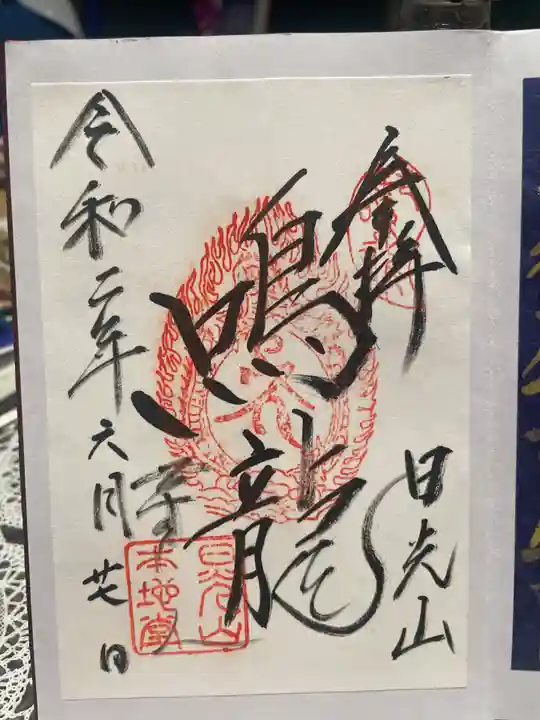 奉拝
日光山
鳴龍
令和二年六月廿七日
日光山
本地堂